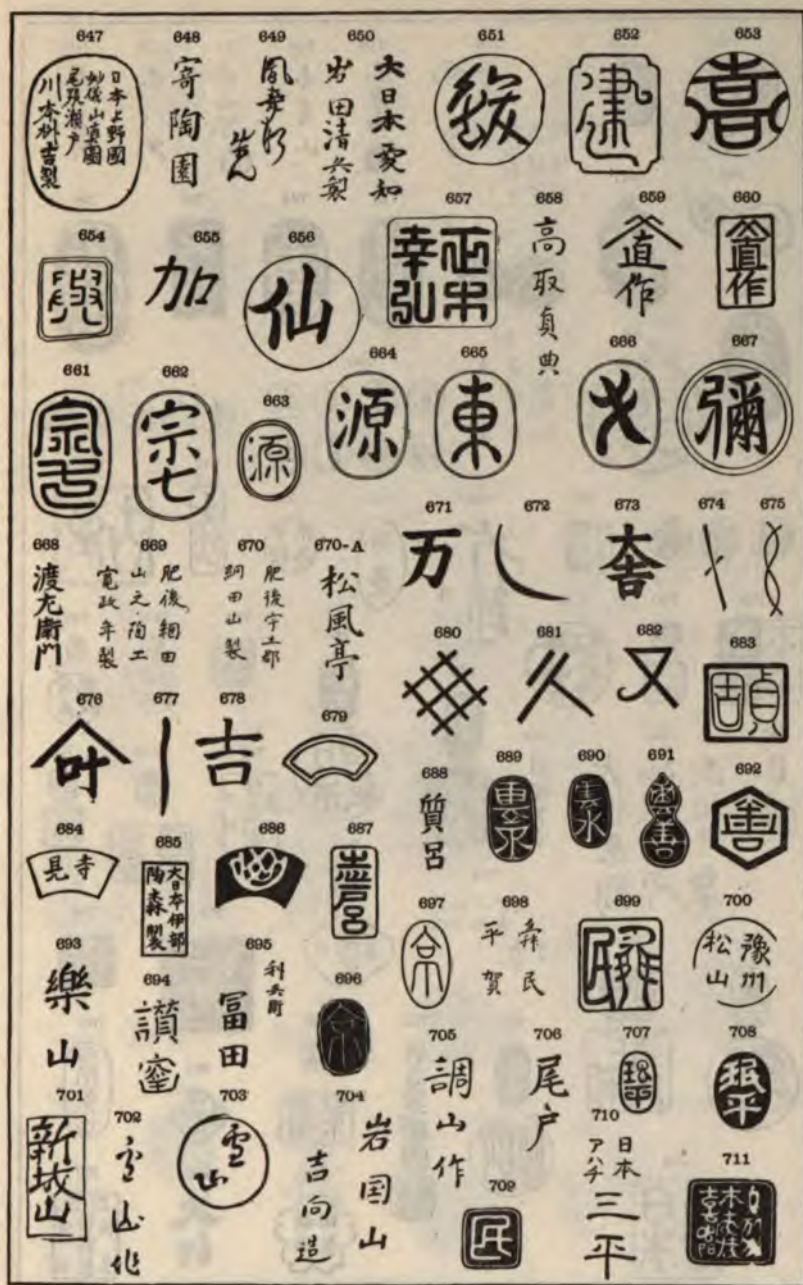 647
日本上野國
妙儀山眞園
尾張瀬戸
川本桝吉製
648
寄陶園
649
650
大日本愛知
岩田清兵製
651
652
653
喜
654
655
加
656
仙
657
幸
弘
658
高取貞典
659
直作
660
直作
661
宗
662
宗七
663
源
664
源
665
東
666
667
彌
668
渡左衛門
669
肥後網田
山之陶工
寛政年製
670
肥後宇土郡
網田山製
670-A
松風亭
671
万
672
673
674
675
676
叶
677
678
吉
679
680
681
久
682
又
683
貞
684
寺見
685
大日本伊部
陶森製
686
687
志戸呂
688
質呂
689
690
雲水
691
善
692
善
693
樂山
694
讃窯
695
利兵衛
冨田
696
697
698
舜民
平賀
699
民
700
豫州
松山
701
新城山
702
雪山作
703
雪山
704
岩国山
吉向造
705
調山作
706
尾戸
707
珉平
708
珉平
709
民
710
日本
アハヂ
三平
711